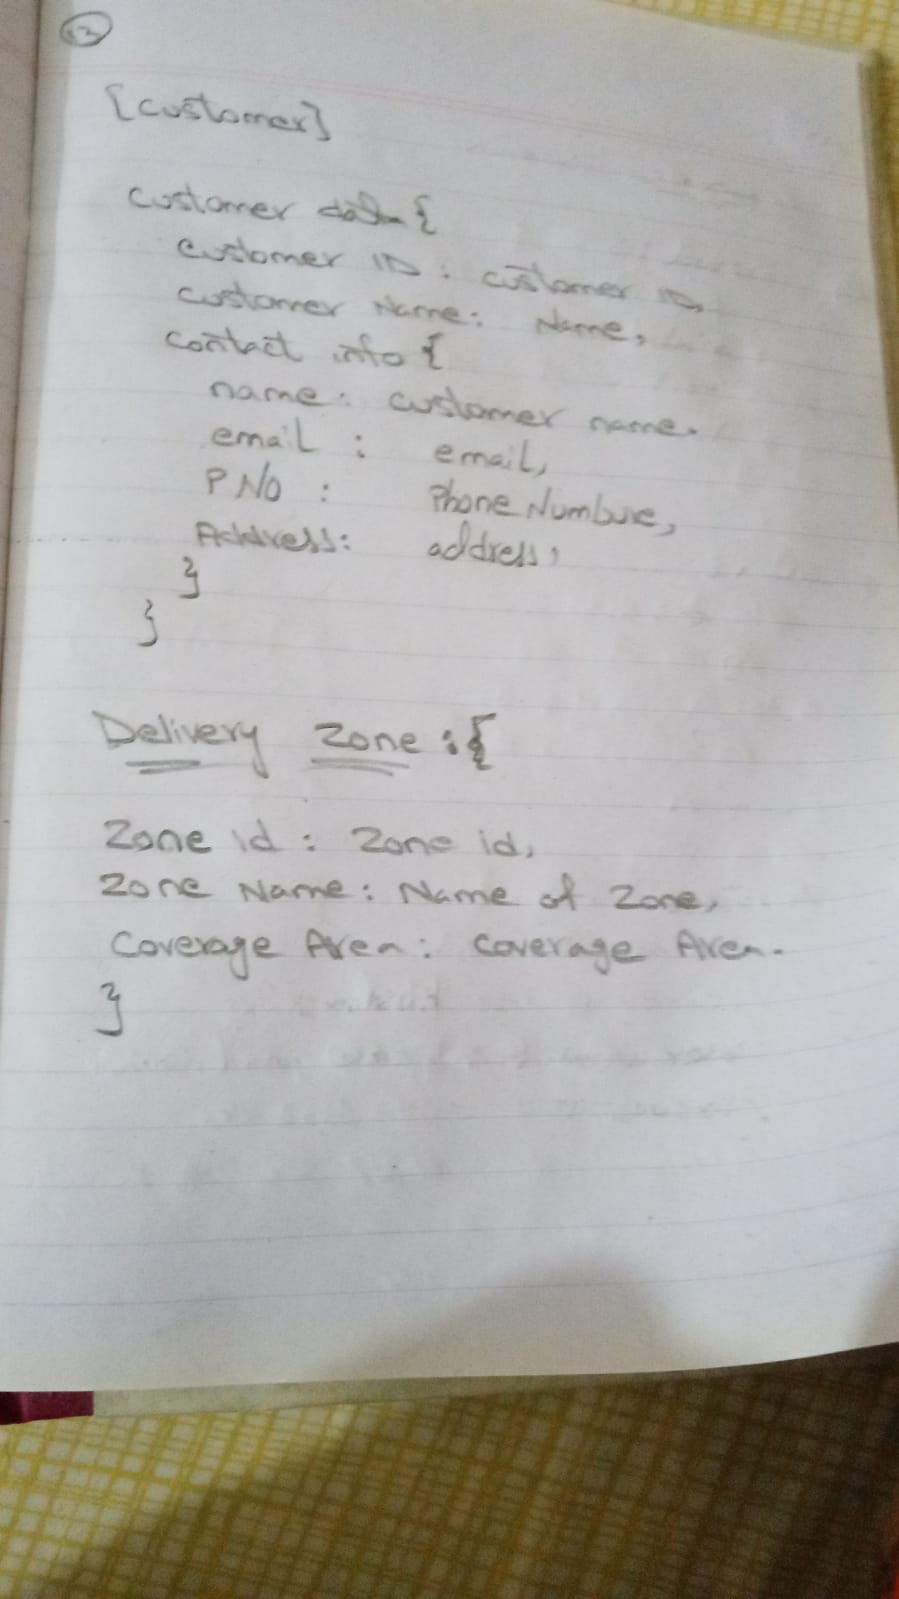 [Customer]
Customer data {
Customer ID : customer ID,
Customer Name : Name,
Contact info {
name : customer name.
email : email,
P No : Phone Numbure,
Address : address,
}
}
Delivery Zone : {
Zone id : Zone id,
Zone Name : Name of Zone,
Coverage Area : Coverage Area.
}